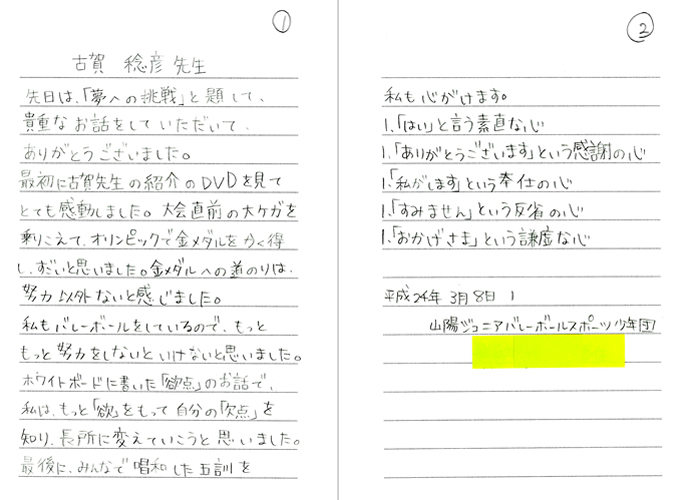 ①
古賀 稔彦先生
先日は、「夢への挑戦」と題して、
貴重なお話をしていただいて、
ありがとうございました。
最初に古賀先生の紹介のDVDを見て
とても感動しました。大会直前の大ケガを
乗りこえて、オリンピックで金メダルをかく得
し、すごいと思いました。金メダルへの道のりは、
努力以外ないと感じました。
私もバレーボールをしているので、もっと
もっと努力をしないといけないと思いました。
ホワイトボードに書いた「欲点」のお話で、
私は、もっと「欲」をもって自分の「欠点」を
知り、長所に変えていこうと思いました。
最後に、みんなで唱和した五訓を
②
私も心がけます。
1.「はい」と言う素直な心
1.「ありがとうございます」という感謝の心
1.「私がします」という奉仕の心
1.「すみません」という反省の心
1.「おかげさま」という謙虚な心
平成24年 3月8日
山陽ジュニアバレーボールスポーツ少年団